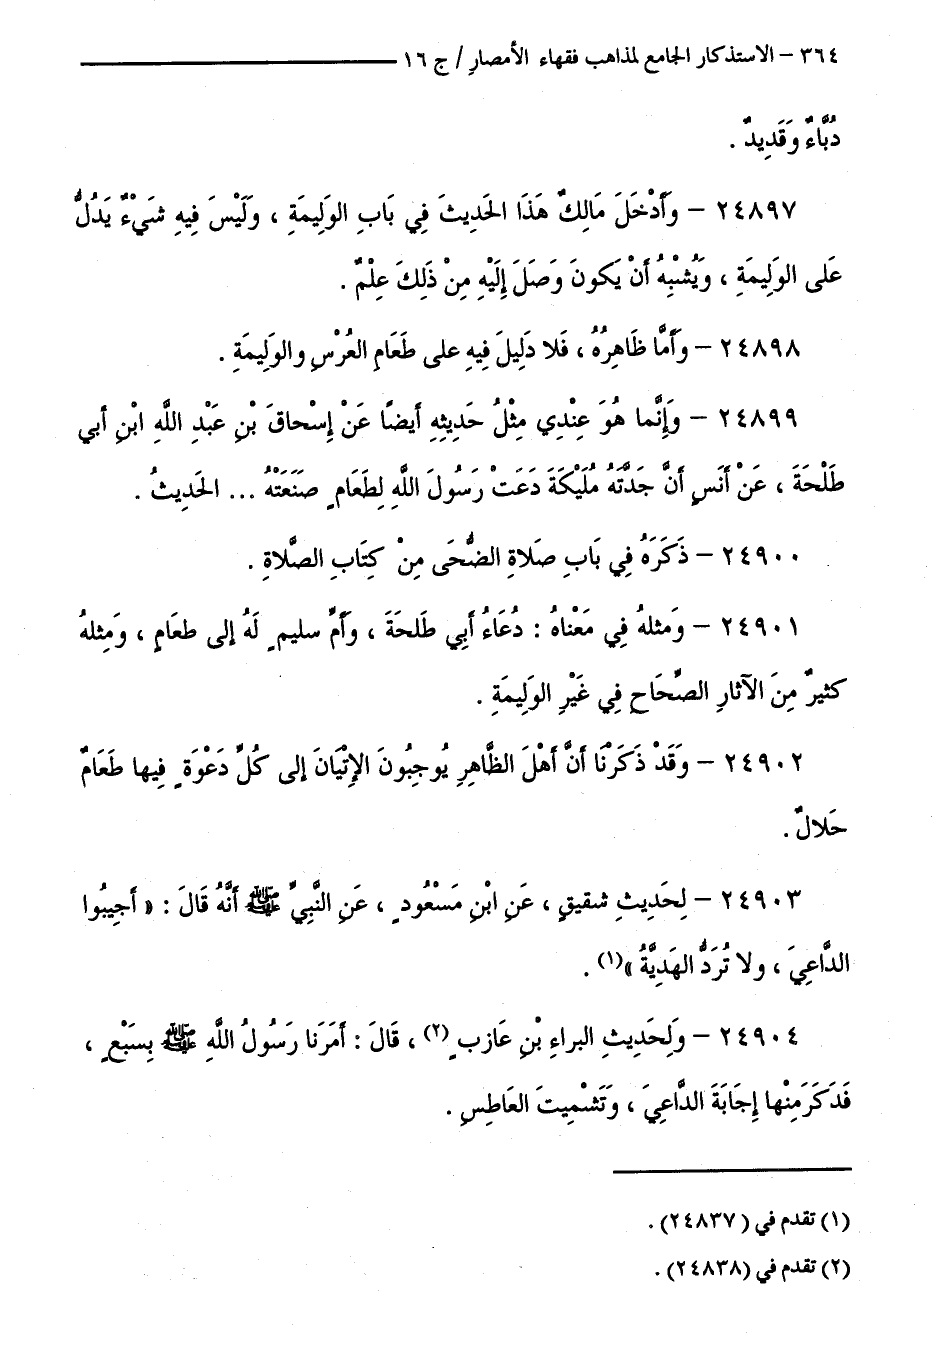 ٣٦٤ – الاستذكار الجامع لمذاهب فقهاء الأمصار / ج ١٦
دُبَّاءٌ وَقَدِيدٌ .
٢٤٨٩٧ – وَأَدْخَلَ مَالِكٌ هَذَا الحَدِيثَ فِي بَابِ الوَلِيمَةِ ، وَلَيْسَ فِيهِ شَيْءٌ يَدُلُّ
عَلى الوَلِيمَةِ ، وَيُشْبِهُ أَنْ يَكونَ وَصَلَ إِلَيْهِ مِنْ ذَلِكَ عِلْمٌ .
٢٤٨٩٨ – وَأَمَّا ظَاهِرُهُ ، فَلا دَلِيلَ فِيهِ على طَعَامِ العُرْسِ والوَلِيمَةِ .
٢٤٨٩٩ – وَإِنَّما هُوَ عِنْدِي مِثْلُ حَدِيثِهِ أيضًا عَنْ إِسْحاقَ بْنِ عَبْدِ اللَّهِ ابْنِ أبي
طَلْحَةَ ، عَنْ أَنَسٍ أَنَّ جَدَّتَهُ مُلَيْكَةَ دَعَتْ رَسُولَ اللَّهِ لِطَعَامٍ صَنَعَتْهُ ... الحَدِيثُ .
٢٤٩٠٠ – ذَكَرَهُ فِي بَابِ صَلاةِ الضُّحَى مِنْ كِتَابِ الصَّلاةِ .
٢٤٩٠١ – وَمثلهُ فِي مَعْنَاهُ : دُعَاءُ أَبِي طَلحَةَ ، وَأُمِّ سليمٍ لَهُ إلى طعَامٍ ، وَمِثلهُ
كثيرٌ مِنَ الآثارِ الصِّحَاحِ فِي غَيْرِ الوَلِيمَةِ .
٢٤٩٠٢ – وَقَدْ ذَكَرْنَا أَنَّ أَهْلَ الظَّاهِرِ يُوجِبُونَ الإِتْيَانَ إلى كُلِّ دَعْوَةٍ فِيها طَعَامٌ
حَلالٌ .
٢٤٩٠٣ – لِحَدِيثِ شقيقٍ ، عَنِ ابْنِ مَسْعُودٍ ، عَنِ النَّبِيِّ ﷺ أَنَّهُ قَالَ : « أجِيبُوا
الدَّاعِيَ ، ولا تُرَدُّ الهَدِيَّةُ »(١) .
٢٤٩٠٤ – وَلِحَدِيثِ البراءِ بْنِ عَازبٍ(٢) ، قَالَ : أَمَرَنَا رَسُولُ اللَّهِ ﷺ بِسَبْعٍ ،
فَذَكَرَ مِنْها إِجَابَةَ الدَّاعِيَ ، وَتَشْمِيتَ العَاطِسِ .
(١) تقدم في (٢٤٨٣٧) .
(٢) تقدم في (٢٤٨٣٨) .